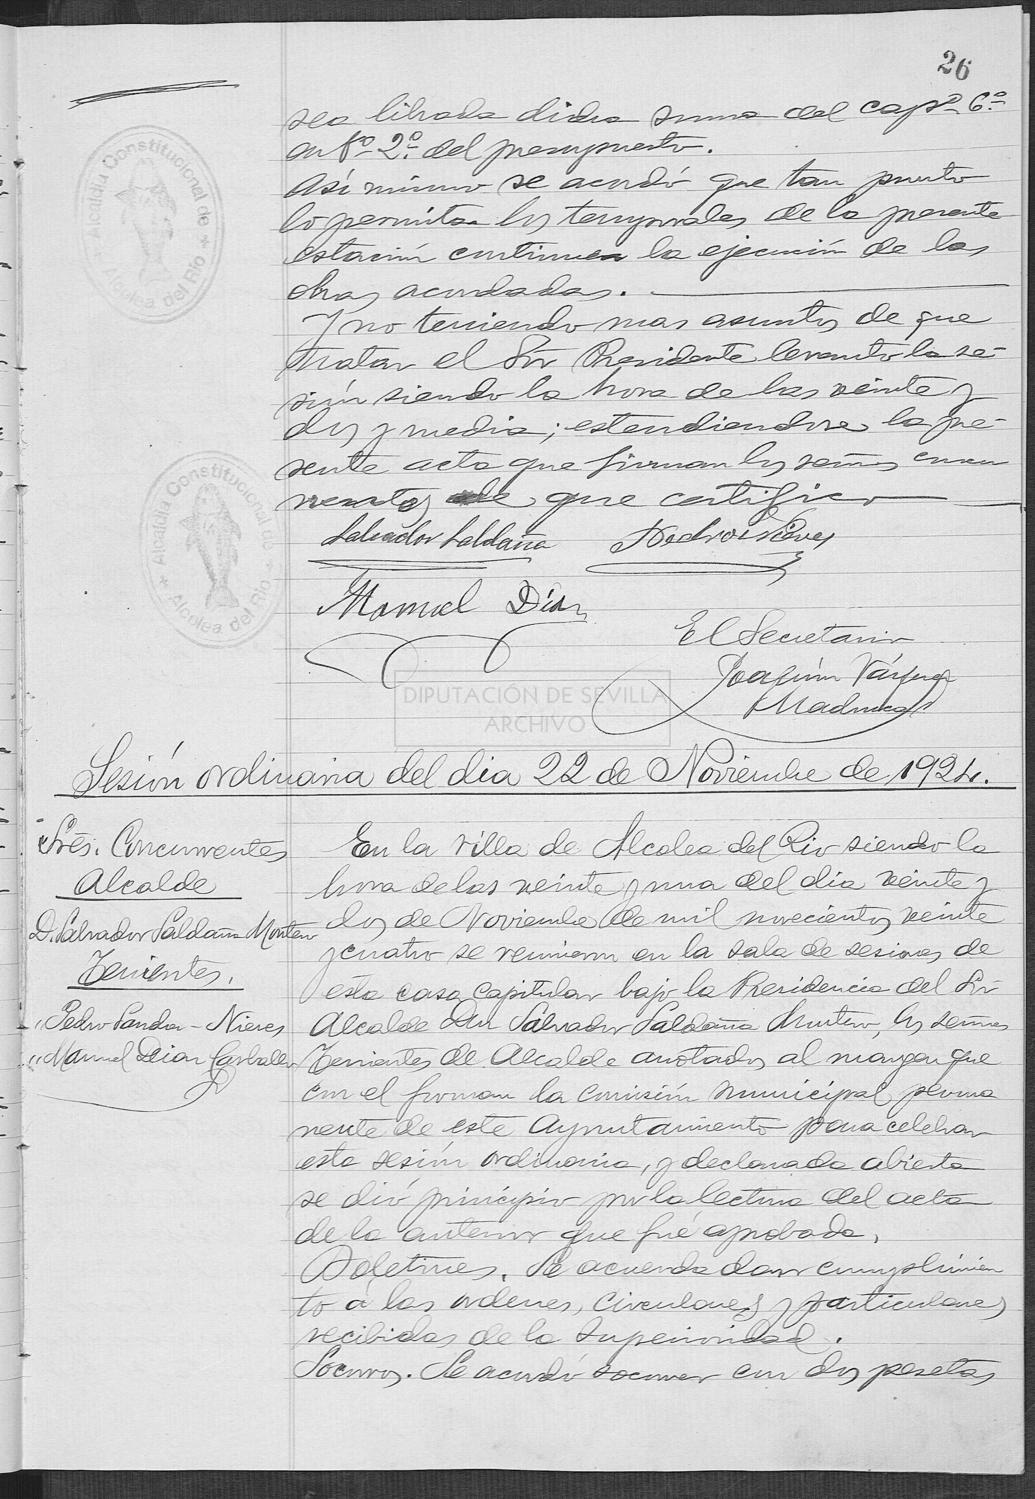 26
sea librada dicha suma del capº. 6º.
artº. 2º. del presupuesto.
Asi mismo se acordó que tan pronto
lo permitan los temporales de la presente
estación continuen la ejecución de las
obras acordadas.
Y no teniendo mas asuntos de que
tratar el Sor Presidente levantó la se-
sión siendo la hora de las veinte y
dos y media; estendiendose la pre-
sente acta que firman los señores concu
rrentes de que certifico
Salvador Saldaña Pedro S. Nieves
Manuel Díaz
El Secretario
Joaquín Vázquez
Alcaldia Constitucional de
Alcolea del Río
Alcaldia Constitucional de
Alcolea del Río
DIPUTACIÓN DE SEVILLA
ARCHIVO
Sesión ordinaria del dia 22 de Noviembre de 1924.
Sres. Concurrentes
Alcalde
D. Salvador Saldaña Montero
Tenientes.
" Pedro Sandor - Nieves
" Manuel Diaz Carballo
En la villa de Alcolea del Rio siendo la
hora de las veinte y una del dia veinte y
dos de Noviembre de mil novecientos veinte
y cuatro se reunieron en la sala de sesiones de
esta casa capitular bajo la Presidencia del Sor
Alcalde Don Salvador Saldaña Montero, los señores
Tenientes de Alcalde anotados al margen que
con el forman la comisión municipal perma
nente de este Ayuntamiento para celebrar
esta sesión ordinaria, y declarada abierta
se dió principio por la lectura del acta
de la anterior que fué aprobada.
Boletines. Se acuerda dar cumplimien
to á las ordenes, circulares y particulares
recibidas de la Superioridad.
Socorros. Se acordó socorrer con dos pesetas